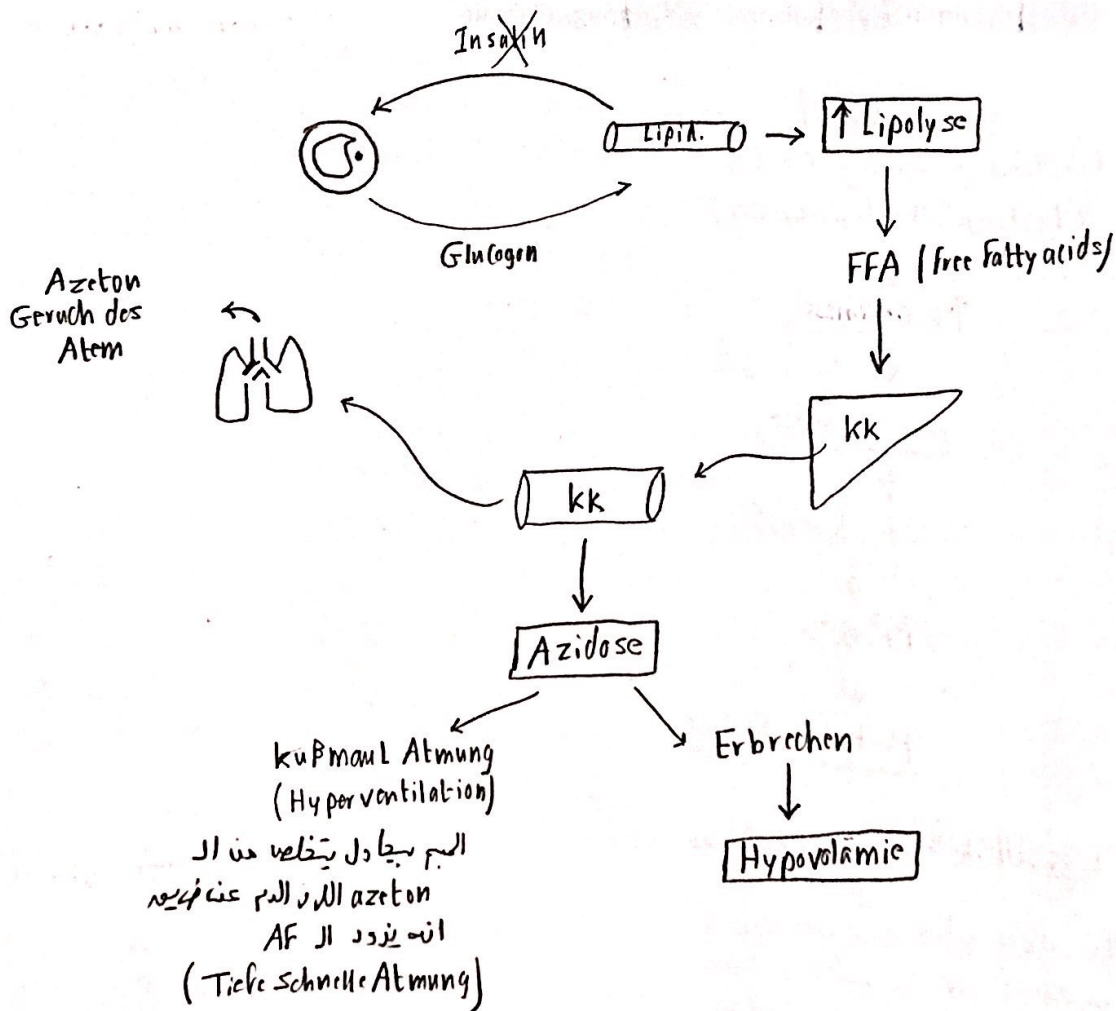 Insulin
Lipid.
↑ Lipolyse
Glucogon
FFA (free Fatty acids)
Azeton
Geruch des
Atem
kk
kk
Azidose
kußmaul Atmung
(Hyperventilation)
الجسم بيحاول يتخلص من ال
azeton اللي الدم عن طريق
انه يزود ال AF
(Tiefe schnelle Atmung)
Erbrechen
Hypovolämie